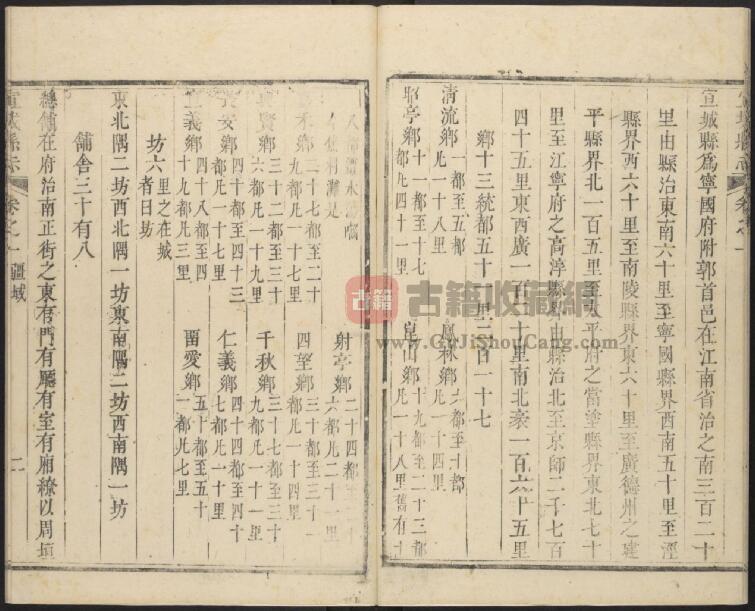 宣城縣爲寧國府附郭首邑在江南省治之南三百二十
里由縣治東南六十里至寧國縣界西南五十里至涇
縣界西六十里至南陵縣界東六十里至廣德州之建
平縣界北一百五里至太平府之當塗縣界東北七十
里至江寧府之高淳縣界由縣治北至京師二千七百
四十五里東西廣一百二十里南北袤一百六十五里
鄉十三統都五十一里二百一十七
清流鄉 一都至五都凡一十八里
廣秋鄉 六都至十都凡一十四里
昭亭鄉
都凡四十一里
昆山鄉 十九都至二十三都凡一十八里舊有十
射亭鄉 二十四都
六都凡二十一里
二十七都至二十
四望鄉 三十都至三十一都凡一十四里
賢鄉 三十二都至三十六都凡一十九里
千秋鄉 九都凡一十一里
長安鄉 四十都至四十三都凡一十七里
仁義鄉 四十四都至四十七都凡一十里
宣義鄉 四十八都至四十九都凡三里
畱愛鄉 五十都至五十一都凡七里
坊六 里之在城者曰坊
東北隅二坊西北隅一坊東南隅二坊西南隅一坊
舖舍三十有八
總舖在府治南正街之東有門有廳有室有廂繚以周垣
宣城縣志
卷之一
疆域
二
古籍
古籍收藏網
www.GuJiShouCang.com